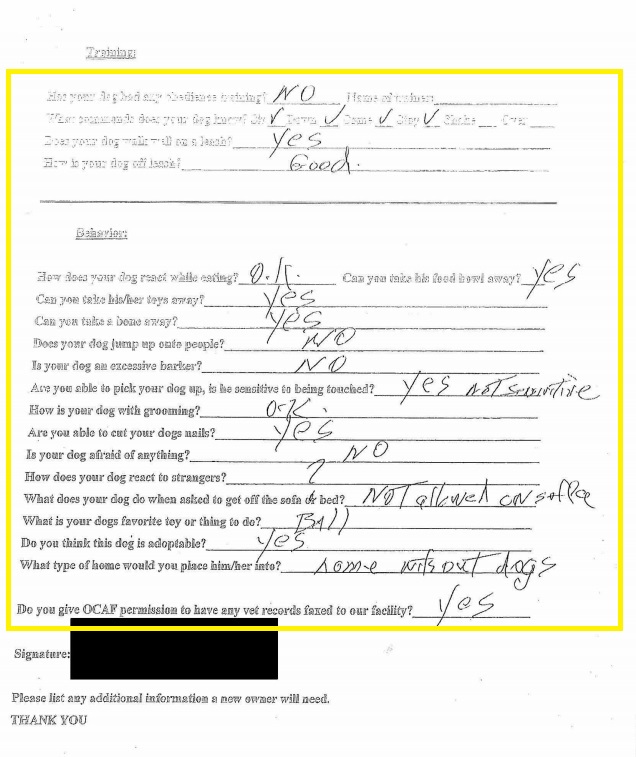 Training:
Has your dog had any obedience training? NO Name of trainer:
What commands does your dog know? Sit ✓ Down ✓ Come ✓ Stay ✓ Shake Over
Does your dog walk well on a leash? yes
How is your dog off leash? Good.
Behavior:
How does your dog react while eating? O.K. Can you take his food bowl away? yes
Can you take his/her toys away? yes
Can you take a bone away? yes
Does your dog jump up onto people? NO
Is your dog an excessive barker? NO
Are you able to pick your dog up, is he sensitive to being touched? yes not sensitive
How is your dog with grooming? O.K.
Are you able to cut your dogs nails? yes
Is your dog afraid of anything? NO
How does your dog react to strangers? ?
What does your dog do when asked to get off the sofa or bed? NOT allowed ON
What is your dogs favorite toy or thing to do? Ball
Do you think this dog is adoptable? yes
What type of home would you place him/her into? home without dogs
Do you give OCAF permission to have any vet records faxed to our facility? yes
Signature:
Please list any additional information a new owner will need.
THANK YOU